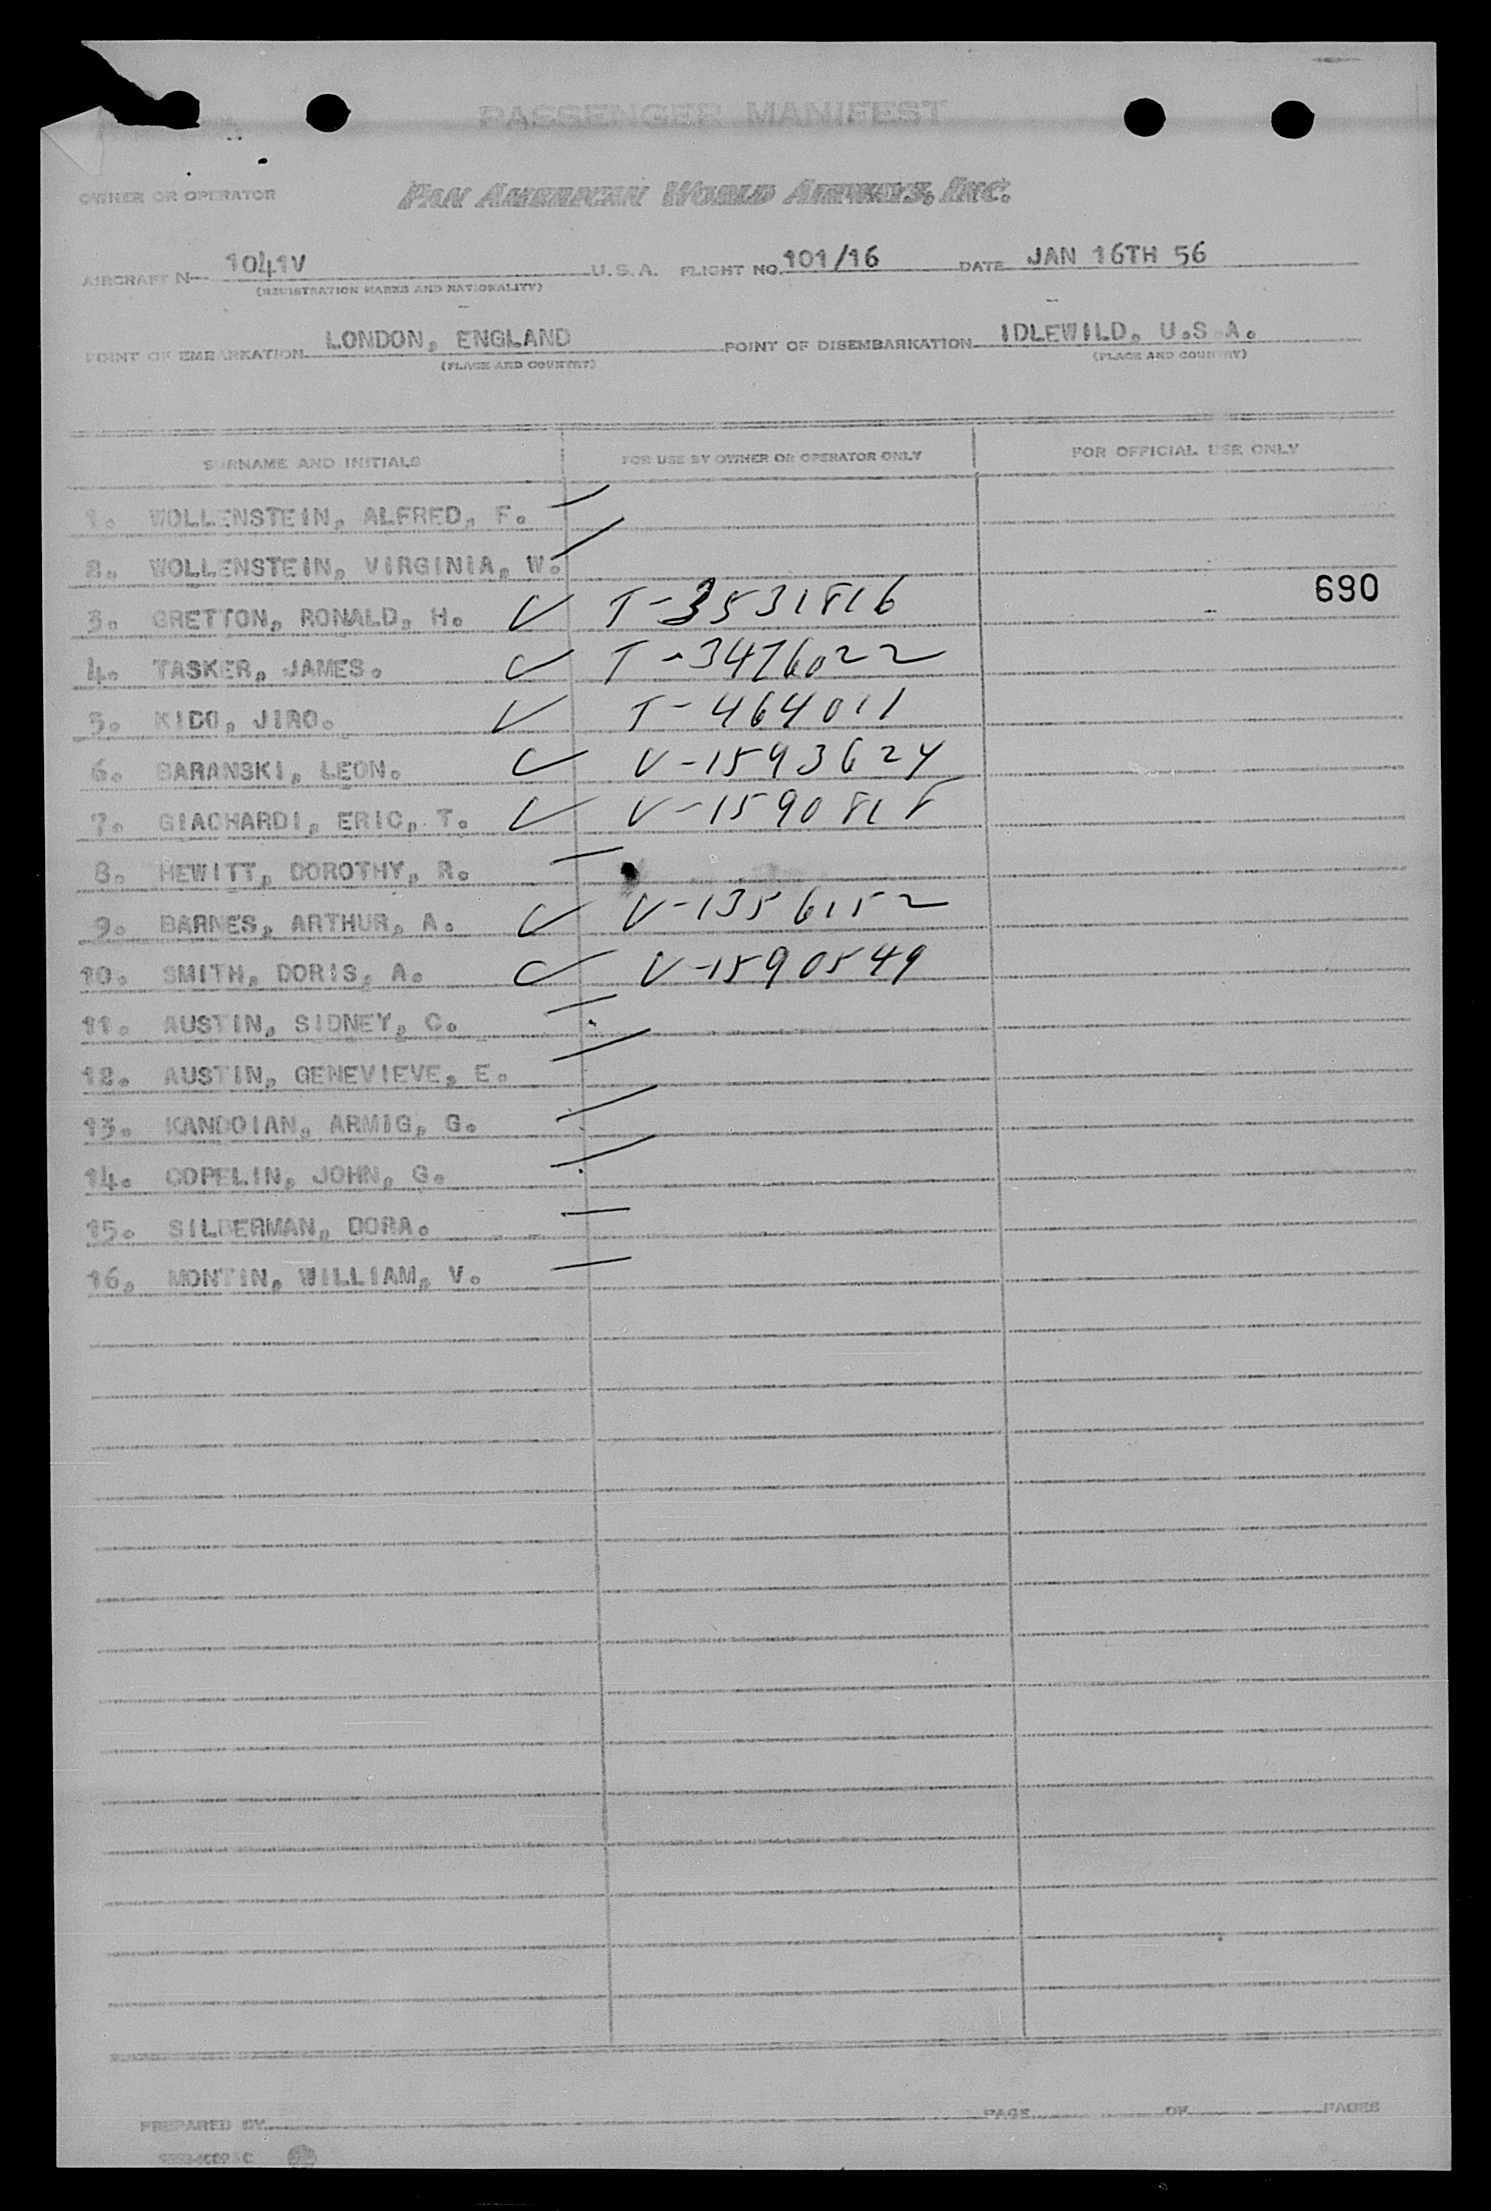 PASSENGER MANIFEST
OWNER OR OPERATOR PAN AMERICAN WORLD AIRWAYS, INC.
AIRCRAFT N 1041V U.S.A. FLIGHT NO. 101/16 DATE JAN 16TH 56
(REGISTRATION MARKS AND NATIONALITY)
POINT OF EMBARKATION LONDON, ENGLAND POINT OF DISEMBARKATION IDLEWILD, U.S.A.
(PLACE AND COUNTRY) (PLACE AND COUNTRY)
SURNAME AND INITIALS FOR USE BY OWNER OR OPERATOR ONLY FOR OFFICIAL USE ONLY
1. WOLLENSTEIN, ALFRED, F.
2. WOLLENSTEIN, VIRGINIA, W.
690
3. GRETTON, RONALD, H. ✓ T-3531816
4. TASKER, JAMES. ✓ T-3476022
5. KIDO, JIRO. ✓ T-464011
6. BARANSKI, LEON. ✓ V-1593624
7. GIACHARDI, ERIC, T. ✓ V-1590818
8. HEWITT, DOROTHY, R.
9. BARNES, ARTHUR, A. ✓ V-1356152
10. SMITH, DORIS, A. ✓ V-1590549
11. AUSTIN, SIDNEY, C.
12. AUSTIN, GENEVIEVE, E.
13. KANDOIAN, ARMIG, G.
14. COPELIN, JOHN, G.
15. SILBERMAN, DORA.
16, MONTIN, WILLIAM, V.
PREPARED BY PAGE OF PAGES